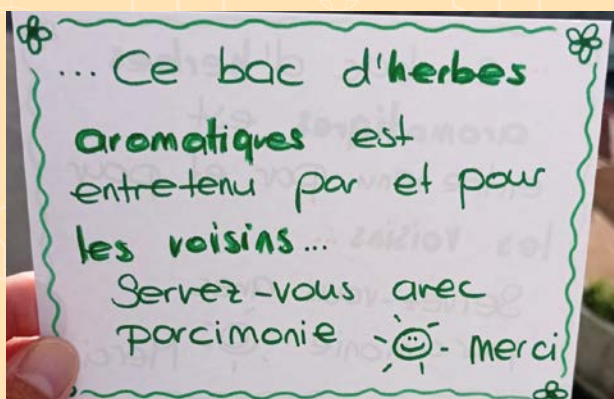 ... Ce bac d'herbes
aromatiques est
entretenu par et pour
les voisins...
Servez-vous avec
parcimonie - merci